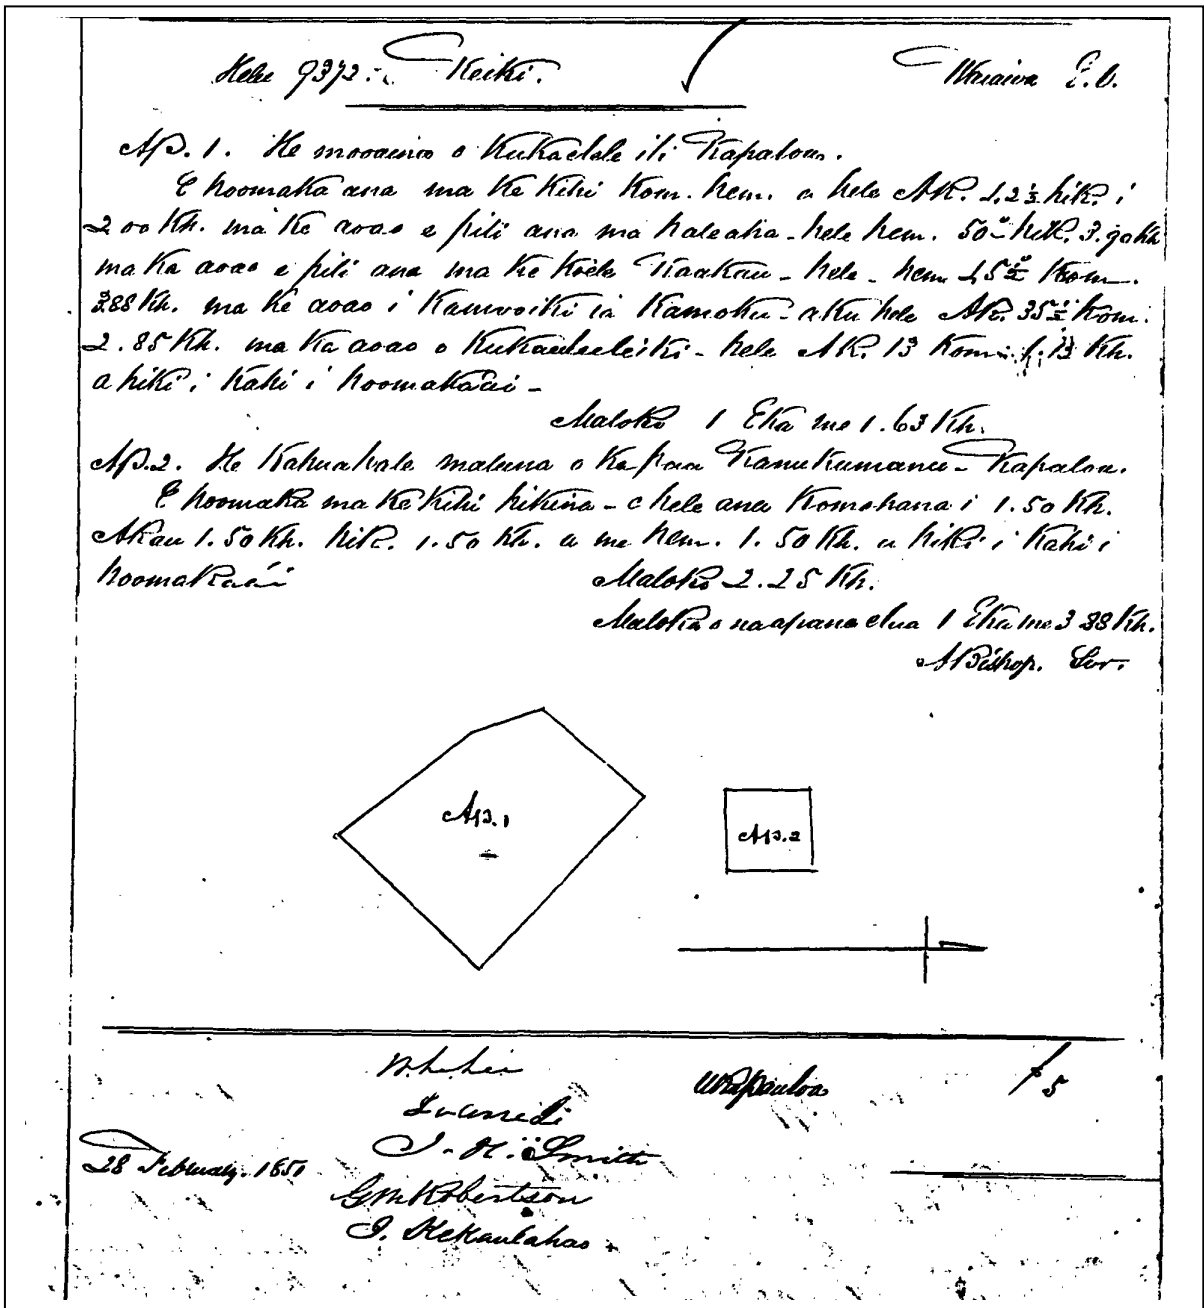 Helu 9372. Keiki. Waiawa E.O.
Ap. 1. He mooaina o Kukaelele ili Kapaloa.
E hoomaka ana ma ke kihi Kom. hem. a hele Ak. hik. i
2 00 Kh. ma ke aoao e pili ana ma haleaha - hele hem. 50 hik. 3.90 Kh
ma ka aoao e pili ana ma ke Koele Kaakau - hele - hem 45 ½ Kom.
3.88 Kh. ma ke aoao i Kamooiki ia Kamoku - aku hele Ak. 35 ½ Kom.
2.85 Kh. ma ka aoao o - hele Ak. 13 Kom. 1.13 Kh.
a hiki i kahi i hoomakaai -
Maloko 1 Eka me 1.63 Kh.
Ap. 2. He Kahuahale maluna o ka paa Kanukumanu - Kapaloa.
E hoomaka ma ke kihi hikina - e hele ana Komohana i 1.50 Kh.
Akau 1.50 Kh. hik. 1.50 Kh. a me hem. 1.50 Kh. a hiki i kahi i
hoomakaai Maloko 2.25 Kh.
Maloko o na apana elua 1 Eka me 3 88 Kh.
A Bishop. Sur.
Ap. 1
Ap. 2
f 5
J. H. Smith
28 February. 1851
G M Robertson
J. Kekaulahao